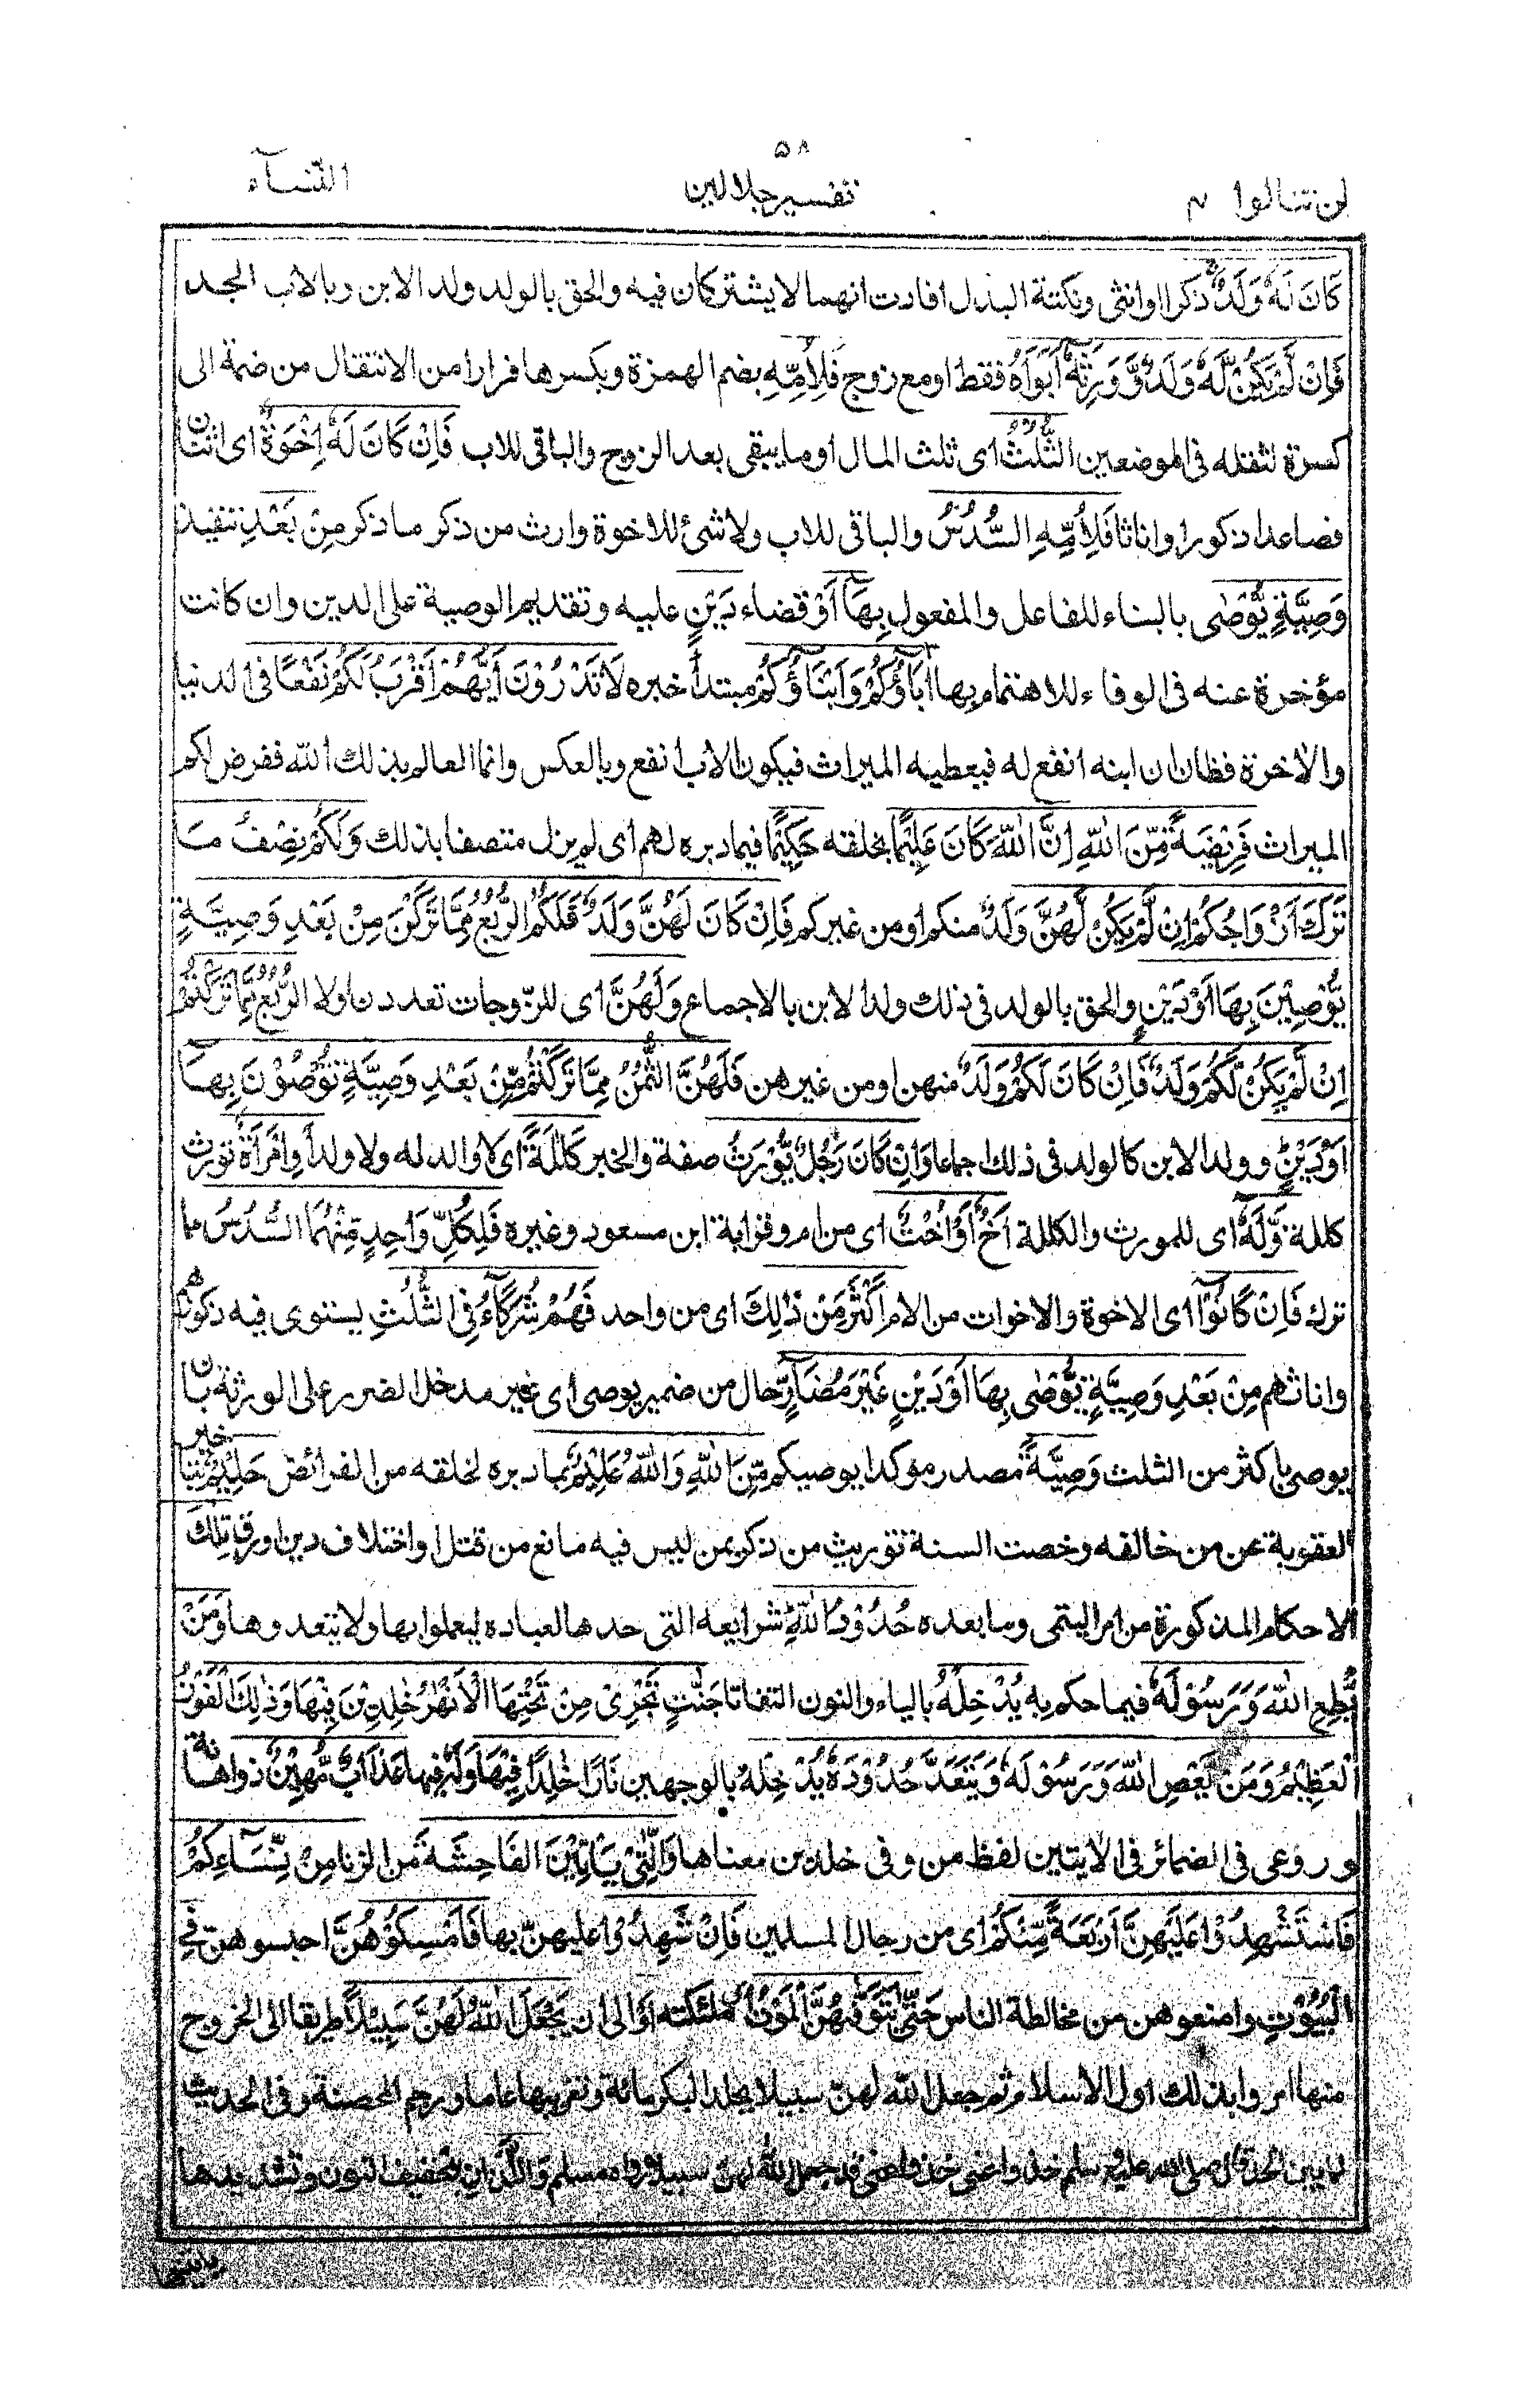 ۵۸
لن تنالوا ۴
تفسير جلالين
النّسآء
كَانَ لَهٗ وَلَدٌ ذكرا اوانثى ونكتة البدل افادت انهما لا يشتركان فيه والحق بالولد ولد الابن وبالاب الجد
فَاِنْ لَّمْ يَكُنْ لَّهٗ وَلَدٌ وَّ وَرِثَهٗٓ اَبَوَاهُ فقط او مع زوج فَلِاُمِّهِ بضم الهمزة وبكسرها فرارا من الانتقال من ضمة الى
كسرة لثقله فى الموضعين الثُّلُثُ اى ثلث المال او ما يبقى بعد الزوج والباقى للاب فَاِنْ كَانَ لَهٗٓ اِخْوَةٌ اى اثنان
فصاعدا ذكورا واناثا فَلِاُمِّهِ السُّدُسُ والباقى للاب ولا شئ للاخوة وارث من ذكر ما ذكر مِنْ بَعْدِ تنفيذ
وَصِيَّةٍ يُّوْصٰى بالبناء للفاعل والمفعول بِهَآ اَوْ قضاء دَيْنٍ عليه وتقديم الوصية على الدين وان كانت
مؤخرة عنه فى الوفاء للاهتمام بها اٰبَآؤُكُمْ وَاَبْنَآؤُكُمْ مبتدأ خبره لَا تَدْرُوْنَ اَيُّهُمْ اَقْرَبُ لَكُمْ نَفْعًا فى الدنيا
والاٰخرة فظان ان ابنه انفع له فيعطيه الميراث فيكون الاب انفع وبالعكس وانما العالم بذلك الله ففرض لكم
الميراث فَرِيْضَةً مِّنَ اللهِ اِنَّ اللهَ كَانَ عَلِيْمًا بخلقه حَكِيْمًا فيما دبره لهم اى لم يزل متصفا بذلك وَلَكُمْ نِصْفُ مَا
تَرَكَ اَزْوَاجُكُمْ اِنْ لَّمْ يَكُنْ لَّهُنَّ وَلَدٌ منكم او من غيركم فَاِنْ كَانَ لَهُنَّ وَلَدٌ فَلَكُمُ الرُّبُعُ مِمَّا تَرَكْنَ مِنْ بَعْدِ وَصِيَّةٍ
يُّوْصِيْنَ بِهَآ اَوْ دَيْنٍ والحق بالولد فى ذلك ولد الابن بالاجماع وَلَهُنَّ اى للزوجات تعددن اولا الرُّبُعُ مِمَّا تَرَكْتُمْ
اِنْ لَّمْ يَكُنْ لَّكُمْ وَلَدٌ فَاِنْ كَانَ لَكُمْ وَلَدٌ منهن او من غيرهن فَلَهُنَّ الثُّمُنُ مِمَّا تَرَكْتُمْ مِّنْ بَعْدِ وَصِيَّةٍ تُوْصُوْنَ بِهَآ
اَوْ دَيْنٍ وولد الابن كالولد فى ذلك اجماعا وَاِنْ كَانَ رَجُلٌ يُّوْرَثُ صفة والخبر كَلٰلَةً اى لا والد له ولا ولد اَوِ امْرَاَةٌ تورث
كللة وَّلَهٗٓ اى للمورث والكللة اَخٌ اَوْ اُخْتٌ اى من ام وقرابة ابن مسعود وغيره فَلِكُلِّ وَاحِدٍ مِّنْهُمَا السُّدُسُ مما
ترك فَاِنْ كَانُوْٓا اى الاخوة والاخوات من الام اَكْثَرَ مِنْ ذٰلِكَ اى من واحد فَهُمْ شُرَكَآءُ فِى الثُّلُثِ يستوى فيه ذكورهم
واناثهم مِنْ بَعْدِ وَصِيَّةٍ يُّوْصٰى بِهَآ اَوْ دَيْنٍ غَيْرَ مُضَآرٍّ حال من ضمير يوصى اى غير مدخل الضرر على الورثة بان
يوصى باكثر من الثلث وَصِيَّةً مصدر مؤكد ليوصيكم مِّنَ اللهِ وَاللهُ عَلِيْمٌ بما دبره لخلقه من الفرائض حَلِيْمٌ بتاخير
العقوبة عن من خالفه وخصت السنة توريث من ذكر بمن ليس فيه مانع من قتل او اختلاف دين او رق تِلْكَ
الاحكام المذكورة من امر اليتمى وما بعده حُدُوْدُ اللهِ شرايعه التى حدها لعباده ليعملوا بها ولا يتعدوها وَمَنْ
يُّطِعِ اللهَ وَرَسُوْلَهٗ فيما حكم به يُدْخِلْهُ بالياء والنون التفاتا جَنّٰتٍ تَجْرِىْ مِنْ تَحْتِهَا الْاَنْهٰرُ خٰلِدِيْنَ فِيْهَا وَذٰلِكَ الْفَوْزُ
الْعَظِيْمُ وَمَنْ يَّعْصِ اللهَ وَرَسُوْلَهٗ وَيَتَعَدَّ حُدُوْدَهٗ يُدْخِلْهُ بالوجهين نَارًا خَالِدًا فِيْهَا وَلَهٗ فيها عَذَابٌ مُّهِيْنٌ ذو اهانة
وروعى فى الضمائر فى الاٰيتين لفظ من وفى خلدين معناها وَالّٰتِىْ يَاْتِيْنَ الْفَاحِشَةَ من الزنا مِنْ نِّسَآءِكُمْ
فَاسْتَشْهِدُوْا عَلَيْهِنَّ اَرْبَعَةً مِّنْكُمْ اى من رجال المسلمين فَاِنْ شَهِدُوْا عليهن بها فَاَمْسِكُوْهُنَّ احبسوهن فِى
الْبُيُوْتِ وامنعوهن من مخالطة الناس حَتّٰى يَتَوَفّٰهُنَّ الْمَوْتُ اى ملئكته اَوْ الى ان يَجْعَلَ اللهُ لَهُنَّ سَبِيْلًا طريقا الى الخروج
منها امروا بذلك اول الاسلام ثم جعل الله لهن سبيلا بجلد البكر مائة وتغريبها عاما ورجم المحصنة وفى الحديث
لما بين الحد قال صلى الله عليه وسلم خذوا عنى خذوا عنى قد جعل الله لهن سبيلا رواه مسلم وَالَّذٰنِ بتخفيف النون وتشديدها